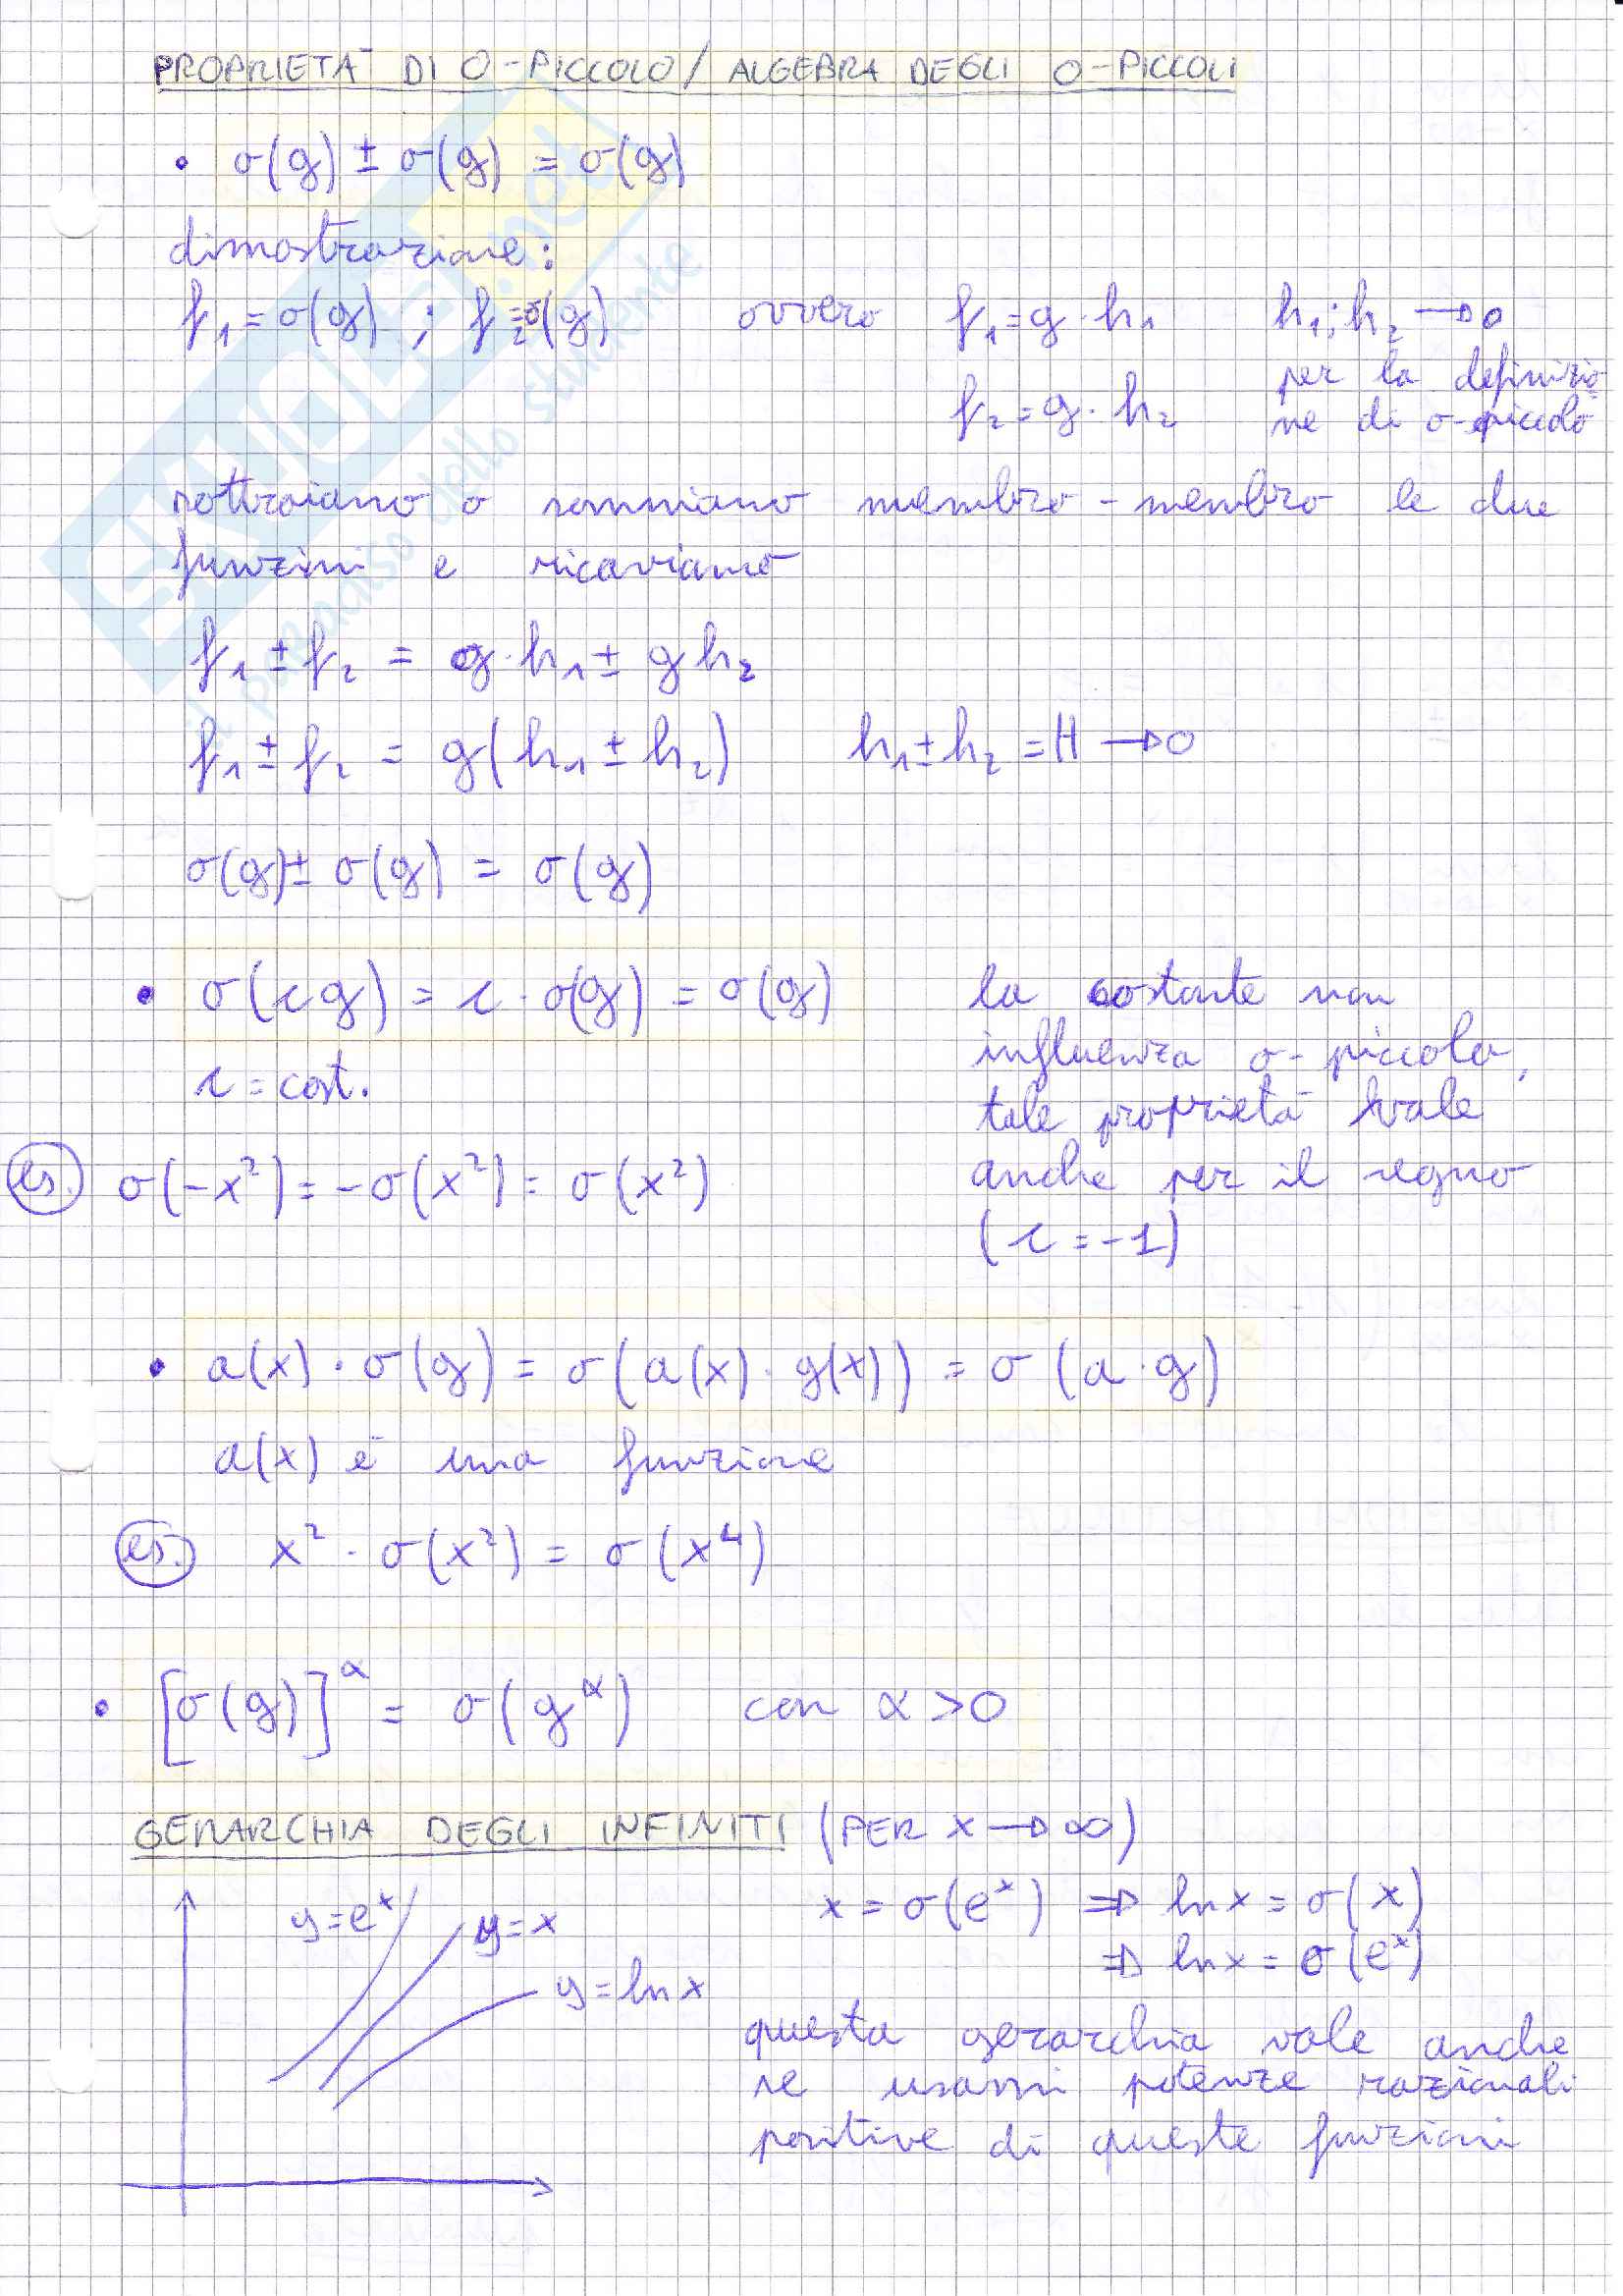 PROPRIETÀ DI O-PICCOLO/ ALGEBRA DEGLI O-PICCOLI
• σ(g) ± σ(g) = σ(g)
dimostrazione:
f₁ = σ(g) ; f₂ = σ(g) ovvero f₁ = g · h₁ h₁; h₂ → 0
per la definizio
f₂ = g · h₂ ne di o-piccolo
sottraiamo o sommiamo membro-membro le due
funzioni e ricaviamo
f₁ ± f₂ = g · h₁ ± g h₂
f₁ ± f₂ = g(h₁ ± h₂) h₁ ± h₂ = H → 0
σ(g) ± σ(g) = σ(g)
• σ(c g) = c · σ(g) = σ(g)
c = cost.
la costante non
influenza o-piccolo,
tale proprietà vale
anche per il segno
(c = -1)
es. σ(-x²) = -σ(x²) = σ(x²)
• a(x) · σ(g) = σ(a(x) · g(x)) = σ(a · g)
a(x) è una funzione
es. x² · σ(x²) = σ(x⁴)
• [σ(g)]^α = σ(g^α) con α > 0
GERARCHIA DEGLI INFINITI (PER x → ∞)
y = eˣ
y = x
y = ln x
x = σ(eˣ) ⇒ ln x = σ(x)
⇒ ln x = σ(eˣ)
questa gerarchia vale anche
se usassi potenze razionali
positive di queste funzioni
.net
il paradiso dello studente